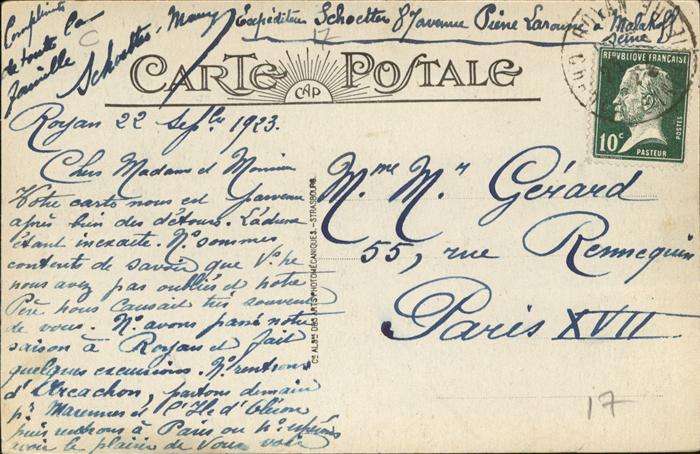 Compliments
de toute la
famille
Schoetter - Mauny
Expéditeur Schoetter 87 avenue Pierre Larousse à Malakoff
Seine
17
CARTE POSTALE
CAP
RÉPUBLIQUE FRANÇAISE
10c
POSTES
PASTEUR
Royan 22 Sepbre 1923.
Chers Madame et Monsieur
Votre carte nous est parvenue
après bien des détours. L'adresse
étant inexacte. Ns sommes
contents de savoir que Vs ne
nous avez pas oubliés et notre
Père nous causait très souvent
de vous. Ns avons passé notre
saison à Royan et fait
quelques excursions. Ns rentrons
d'Arcachon, partons demain
pr Marennes et l'Ile d'Oléron
puis rentrons à Paris ou ns espérons
avoir le plaisir de Vous voir
Cie ALSne DES ARTS PHOTOMÉCANIQUES.-STRASBOURG.
Mme Mr Gérard
55, rue Rennequin
Paris XVII
17